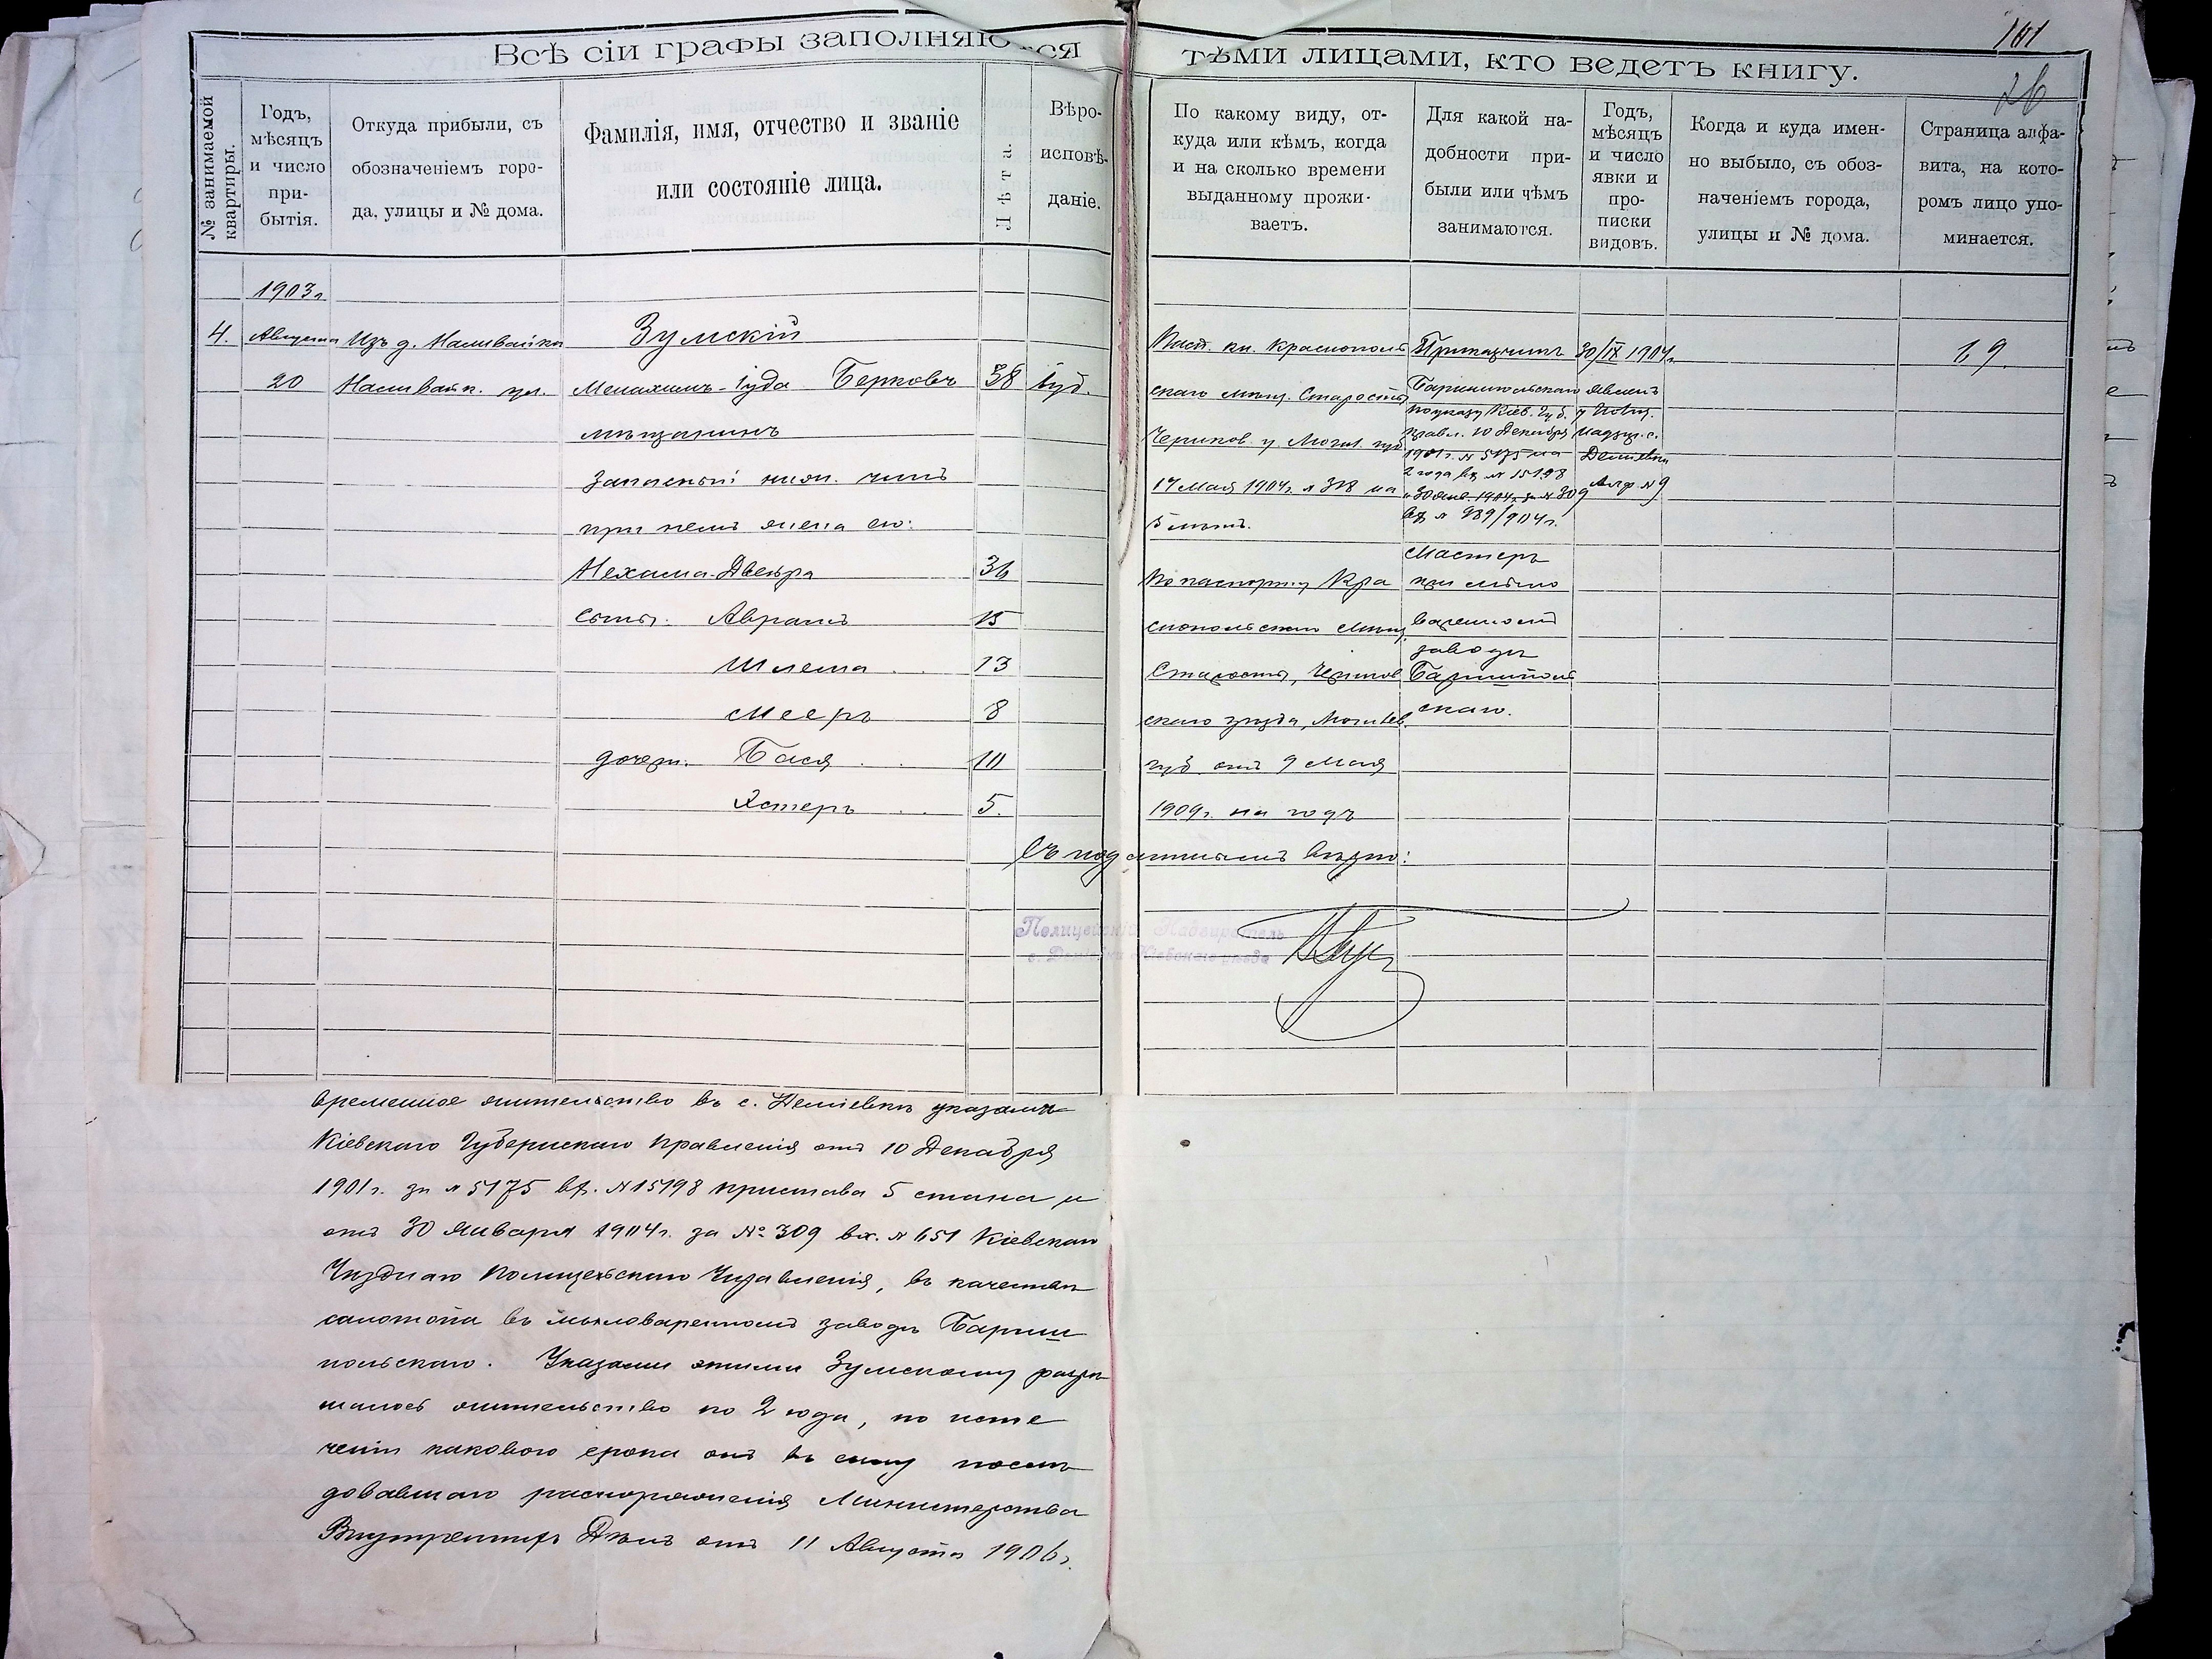 101
26
Всѣ сіи графы заполняются тѣми лицами, кто ведетъ книгу.
№ занимаемой квартиры.
Годъ, мѣсяцъ и число прибытія.
Откуда прибыли, съ обозначеніемъ города, улицы и № дома.
Фамилія, имя, отчество и званіе или состояніе лица.
Лѣта.
Вѣроисповѣданіе.
По какому виду, откуда или кѣмъ, когда и на сколько времени выданному проживаетъ.
Для какой надобности прибыли или чѣмъ занимаются.
Годъ, мѣсяцъ и число явки и прописки видовъ.
Когда и куда именно выбыло, съ обозначеніемъ города, улицы и № дома.
Страница алфавита, на которомъ лицо упоминается.
1903 г
4. Августа Изъ д. Наливайко Зумскій
20 Наливайк. ул. Менахимъ-Іуда Берковъ 38 Іуд.
мѣщанинъ
запасный нижн. чинъ
при немъ жена его:
Нехама-Двейра 36
сыны. Аврамъ 15
Шлема 13
Мееръ 8
дочери. Бася 10
Эстеръ 5.
Пасп. кн. Краснополь
скаго мѣщ. Старосты
Чериков. у. Могил. губ.
17 Мая 1904 г. № 318 на
5 лѣтъ.
По паспорту Кра
снопольскаго Мѣщ.
Старосты, Чериков
скаго уѣзда, Могилев.
губ. отъ 9 Мая
1909 г. на годъ
Приказчикъ
Баришпольскаго
по указу Кіев. Губ.
Правл. 10 Декабря
1901 г. № 5175 на
2 года вх. № 15198
и 30 янв. 1904 г. за № 309
вх № 989/904 г.
Мастеръ
при мыло
варенномъ
заводѣ
Баришполь
скаго.
30/IX 1904 г.
явленъ
у Полиц.
Надзир. с.
Деміевки
Алф. № 9
19.
Съ подлиннымъ вѣрно:
Полицейскій Надзиратель
с. Деміевки Кіевскаго уѣзда
временное жительство въ с. Деміевкѣ указами
Кіевскаго Губернскаго Правленія отъ 10 Декабря
1901 г. за № 5175 вх. № 15198 пристава 5 стана и
отъ 30 Января 1904 г. за № 309 вх. № 651 Кіевскаго
Уѣзднаго Полицейскаго Управленія, въ качествѣ
салотопа въ мыловаренномъ заводѣ Бариш
польскаго. Указами этими Зумскому разрѣ
шалось жительство по 2 года, по исте
ченіи каковаго срока онъ въ силу послѣ
довавшаго распоряженія Министерства
Внутреннихъ Дѣлъ отъ 11 Августа 1906 г.